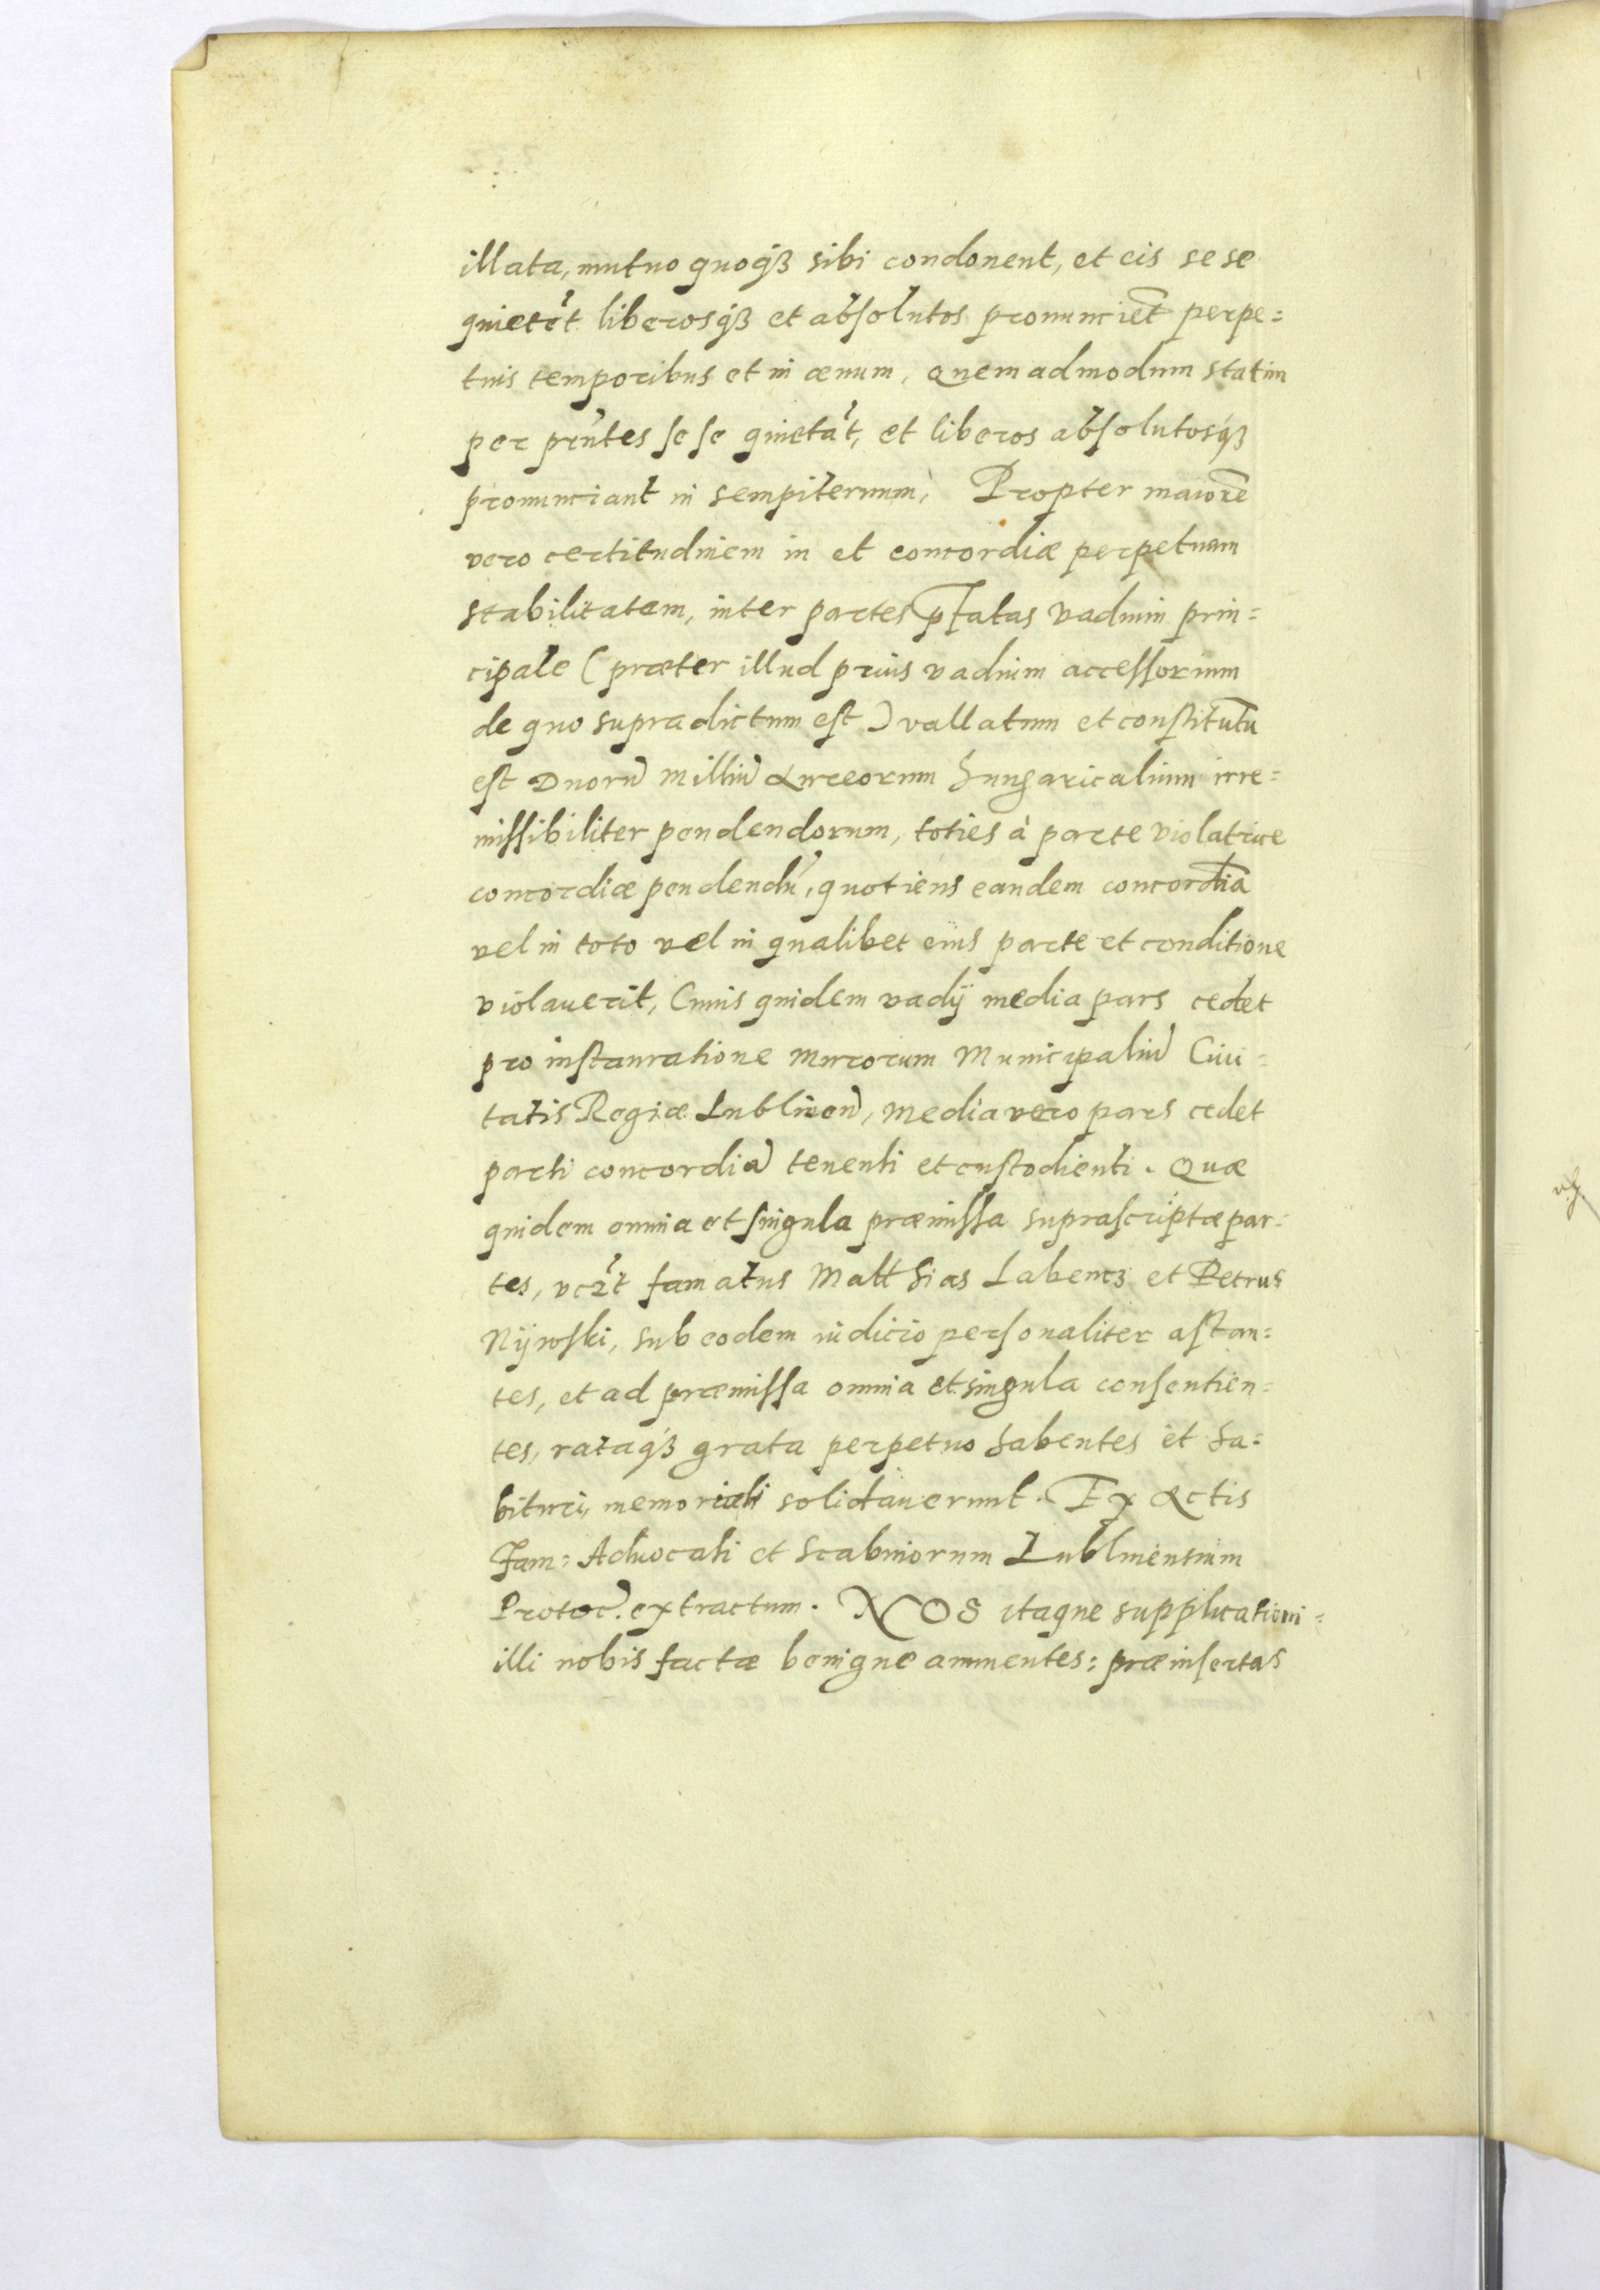 illata, mutuo quoqȝ sibi condonent, et eis se se
quietēt liberosqȝ et absolutos pronunciēt perpe=
tuis temporibus et in æuum, Quemadmodum statim
per prn̄tes se se quietāt, et liberos absolutosqȝ
pronunciant in sempiternum, Propter maiorē
vero certitudinem in et concordiæ perpetuam
stabilitatem, inter partes p̄fatas vadium prin=
cipale (præter illud prius vadium accessorium
de quo supradictum est) vallatum et constitutū
est Duorū milliū Aureorum hungaricalium irre=
missibiliter pendendorum, toties à parte violatrice
concordiæ pendendū, quotiens eandem concordiā
vel in toto vel in qualibet eius parte et conditione
violauerit, Cuius quidem vadij media pars cedet
pro instauratione murorum Municipaliū Ciui=
tatis Regiæ Lublicen̄, media vero pars cedet
parti concordiā tenenti et custodienti. Quæ
quidem omnia et singula præmissa suprascriptæ par=
tes, vcꝫt famatus Matthias Labencz et Petrus
Nijwski, sub eodem iudicio personaliter astan=
tes, et ad præmissa omnia et singula consentien=
tes, rataqȝ grata perpetuo habentes et ha=
bituri, memoriali solidauerunt. Ex Actis
Fam: Aduocati et Scabinorum Lublinensium
Protoc̄. extractum. NOS itaque supplicationi=
illi nobis factæ benigne annuentes: præinsertas